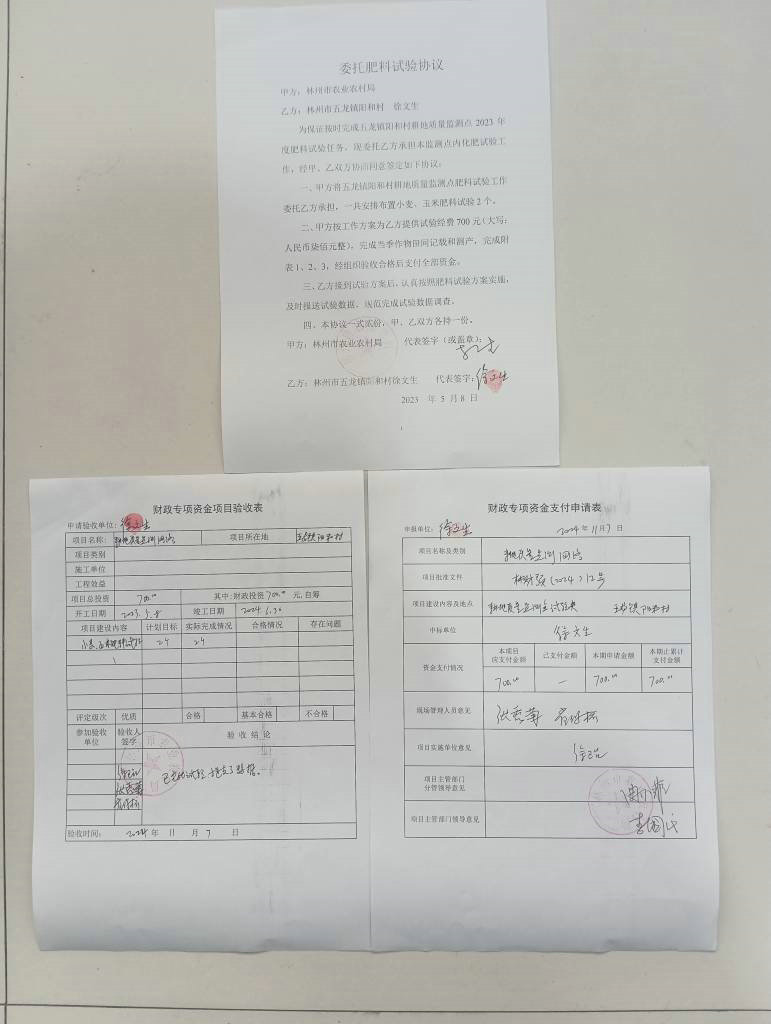 委托肥料试验协议
甲方：林州市农业农村局
乙方：林州市五龙镇阳和村 徐文生
为保证按时完成五龙镇阳和村耕地质量监测点 2023 年
度肥料试验任务，现委托乙方承担本监测点内化肥试验工
作，经甲、乙双方协商同意签定如下协议：
一、甲方将五龙镇阳和村耕地质量监测点肥料试验工作
委托乙方承担，一共安排布置小麦、玉米肥料试验 2 个。
二、甲方按工作方案为乙方提供试验经费 700 元（大写：
人民币柒佰元整），完成当季作物田间记载和测产，完成附
表 1、2、3，经组织验收合格后支付全部资金。
三、乙方接到试验方案后，认真按照肥料试验方案实施，
及时报送试验数据、规范完成试验数据调查。
四、本协议一式贰份，甲、乙双方各持一份。
甲方：林州市农业农村局 代表签字（或盖章）：
乙方：林州市五龙镇阳和村徐文生 代表签字：徐文生
2023 年 5 月 8 日
1
财政专项资金项目验收表
申请验收单位：徐文生
项目名称： 耕地质量监测网络 项目所在地 五龙镇阳和村
项目类别
施工单位
工程效益
项目总投资 700.00 其中：财政投资 700.00 元，自筹
开工日期 2023.5.8 竣工日期 2024.6.30
项目建设内容 计划目标 实际完成情况 合格情况 存在问题
小麦、玉米肥料试验 2个 2个
评定级次 优质 合格 基本合格 不合格
参加验收单位 验收人签字 验 收 结 论
已完成试验，提交了数据。
验收时间： 2024 年 11 月 7 日
财政专项资金支付申请表
申报单位：徐文生 2024 年 11 月 7 日
项目名称及类别 耕地质量监测网络
项目批准文件 林财预（2024）12号
项目建设内容及地点 耕地质量监测点试验类 五龙镇阳和村
中标单位 徐文生
资金支付情况 本项目应支付金额 已支付金额 本期申请金额 本期止累计支付金额
700.00 — 700.00 700.00
现场管理人员意见
项目实施单位意见
项目主管部门分管领导意见
项目主管部门领导意见